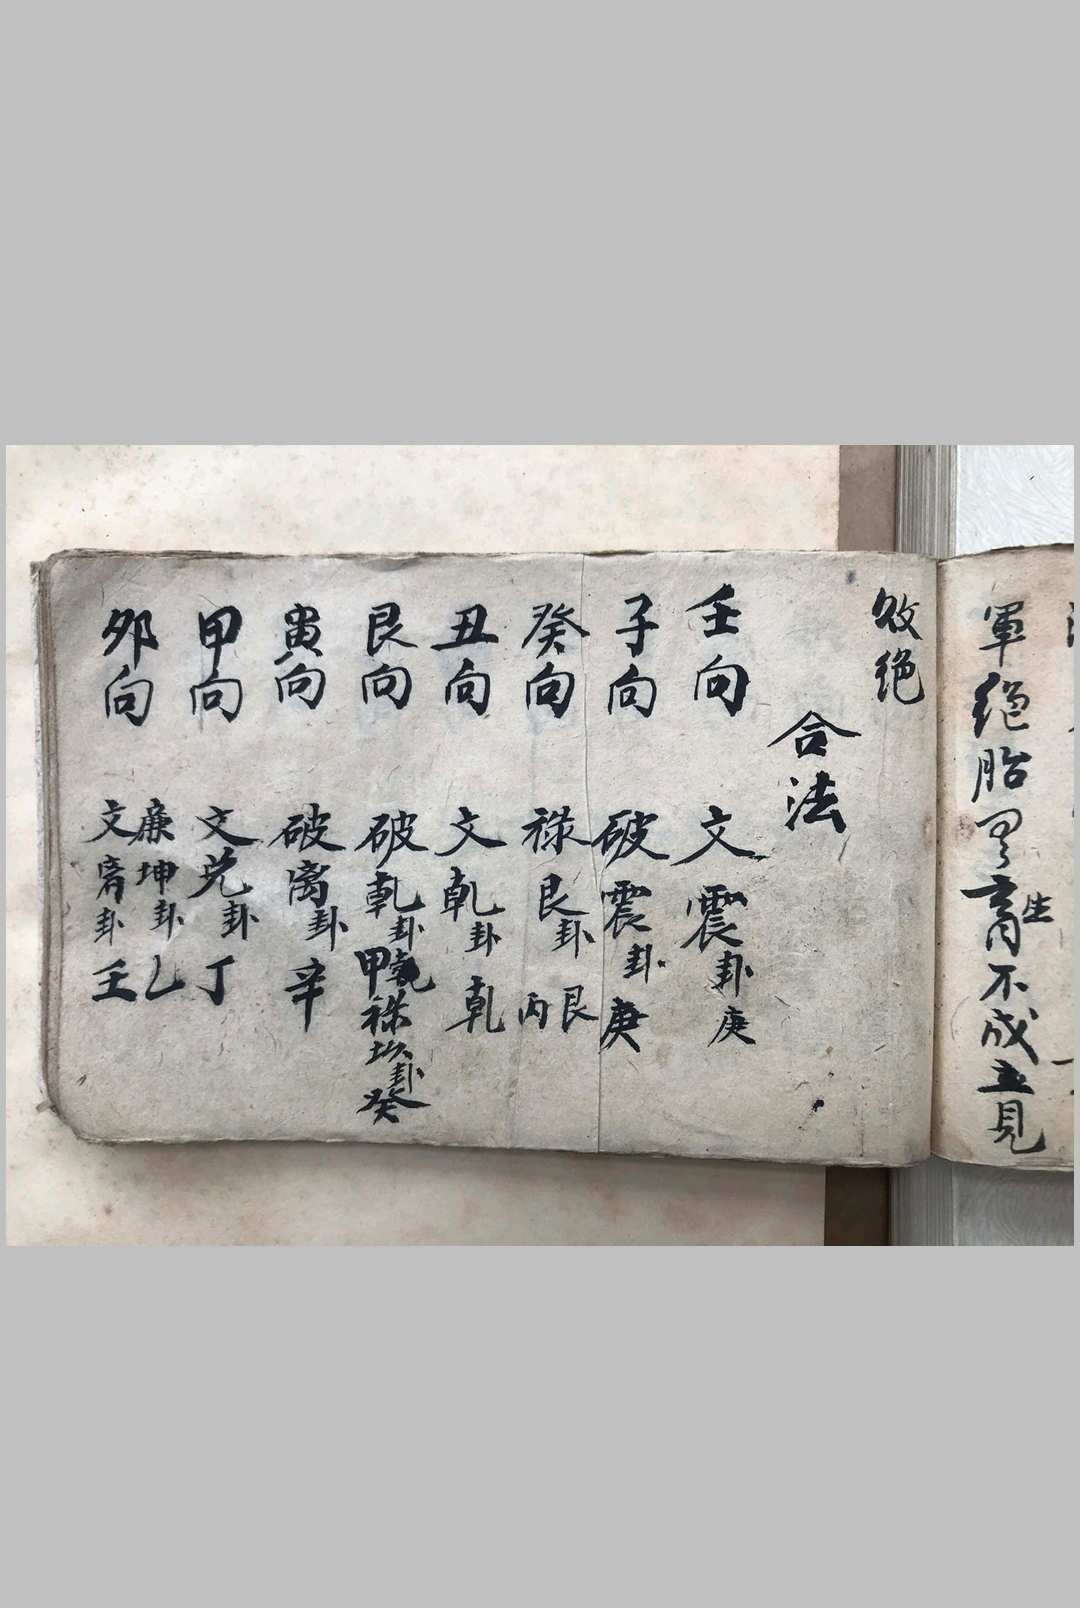 軍絕胎
育生不成立見
敗絕
合法
壬向 文震卦庚
子向 破震卦庚
癸向 祿艮卦艮丙
丑向 文乾卦乾
艮向 破乾卦甲乾祿坎卦癸
寅向 破离卦辛
甲向 文兑卦丁
卯向 廉坤卦乙
文离卦壬